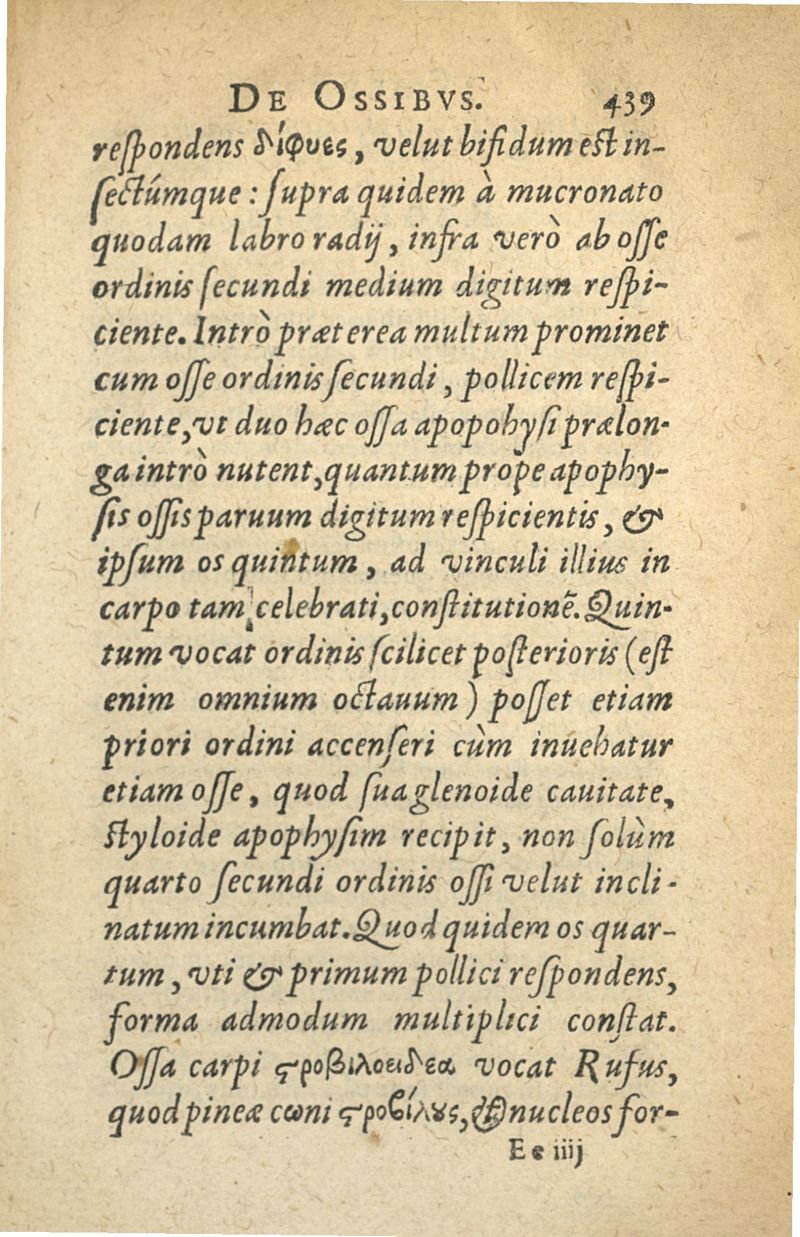 DE OSSIBVS. 439
reſpondens δίφυες, velut bifidum eſt in-
ſectúmque : ſupra quidem à mucronato
quodam labro radij, infra verò ab oſſe
ordinis ſecundi medium digitum reſpi-
ciente. Introˋ præterea multum prominet
cum oſſe ordinis ſecundi, pollicem reſpi-
ciente, vt duo hæc oſſa apopohyſi prælon-
ga intrò nutent, quantum prope apophy-
ſis oſſis paruum digitum reſpicientis, &
ipſum os quintum, ad vinculi illius in
carpo tam celebrati, conſtitutionẽ. Quin-
tum vocat ordinis ſcilicet poſterioris (eſt
enim omnium octauum) poſſet etiam
priori ordini accenſeri cùm inuehatur
etiam oſſe, quod ſua glenoide cauitate,
ſtyloide apophyſim recipit, non ſolùm
quarto ſecundi ordinis oſſi velut incli-
natum incumbat. Quod quidem os quar-
tum, vti & primum pollici reſpondens,
forma admodum multiplici conſtat.
Oſſa carpi ϛροβιλοειδεα vocat Rufus,
quod pineæ cωni ϛροβίλȣς, & nucleos for-
Ee iiij